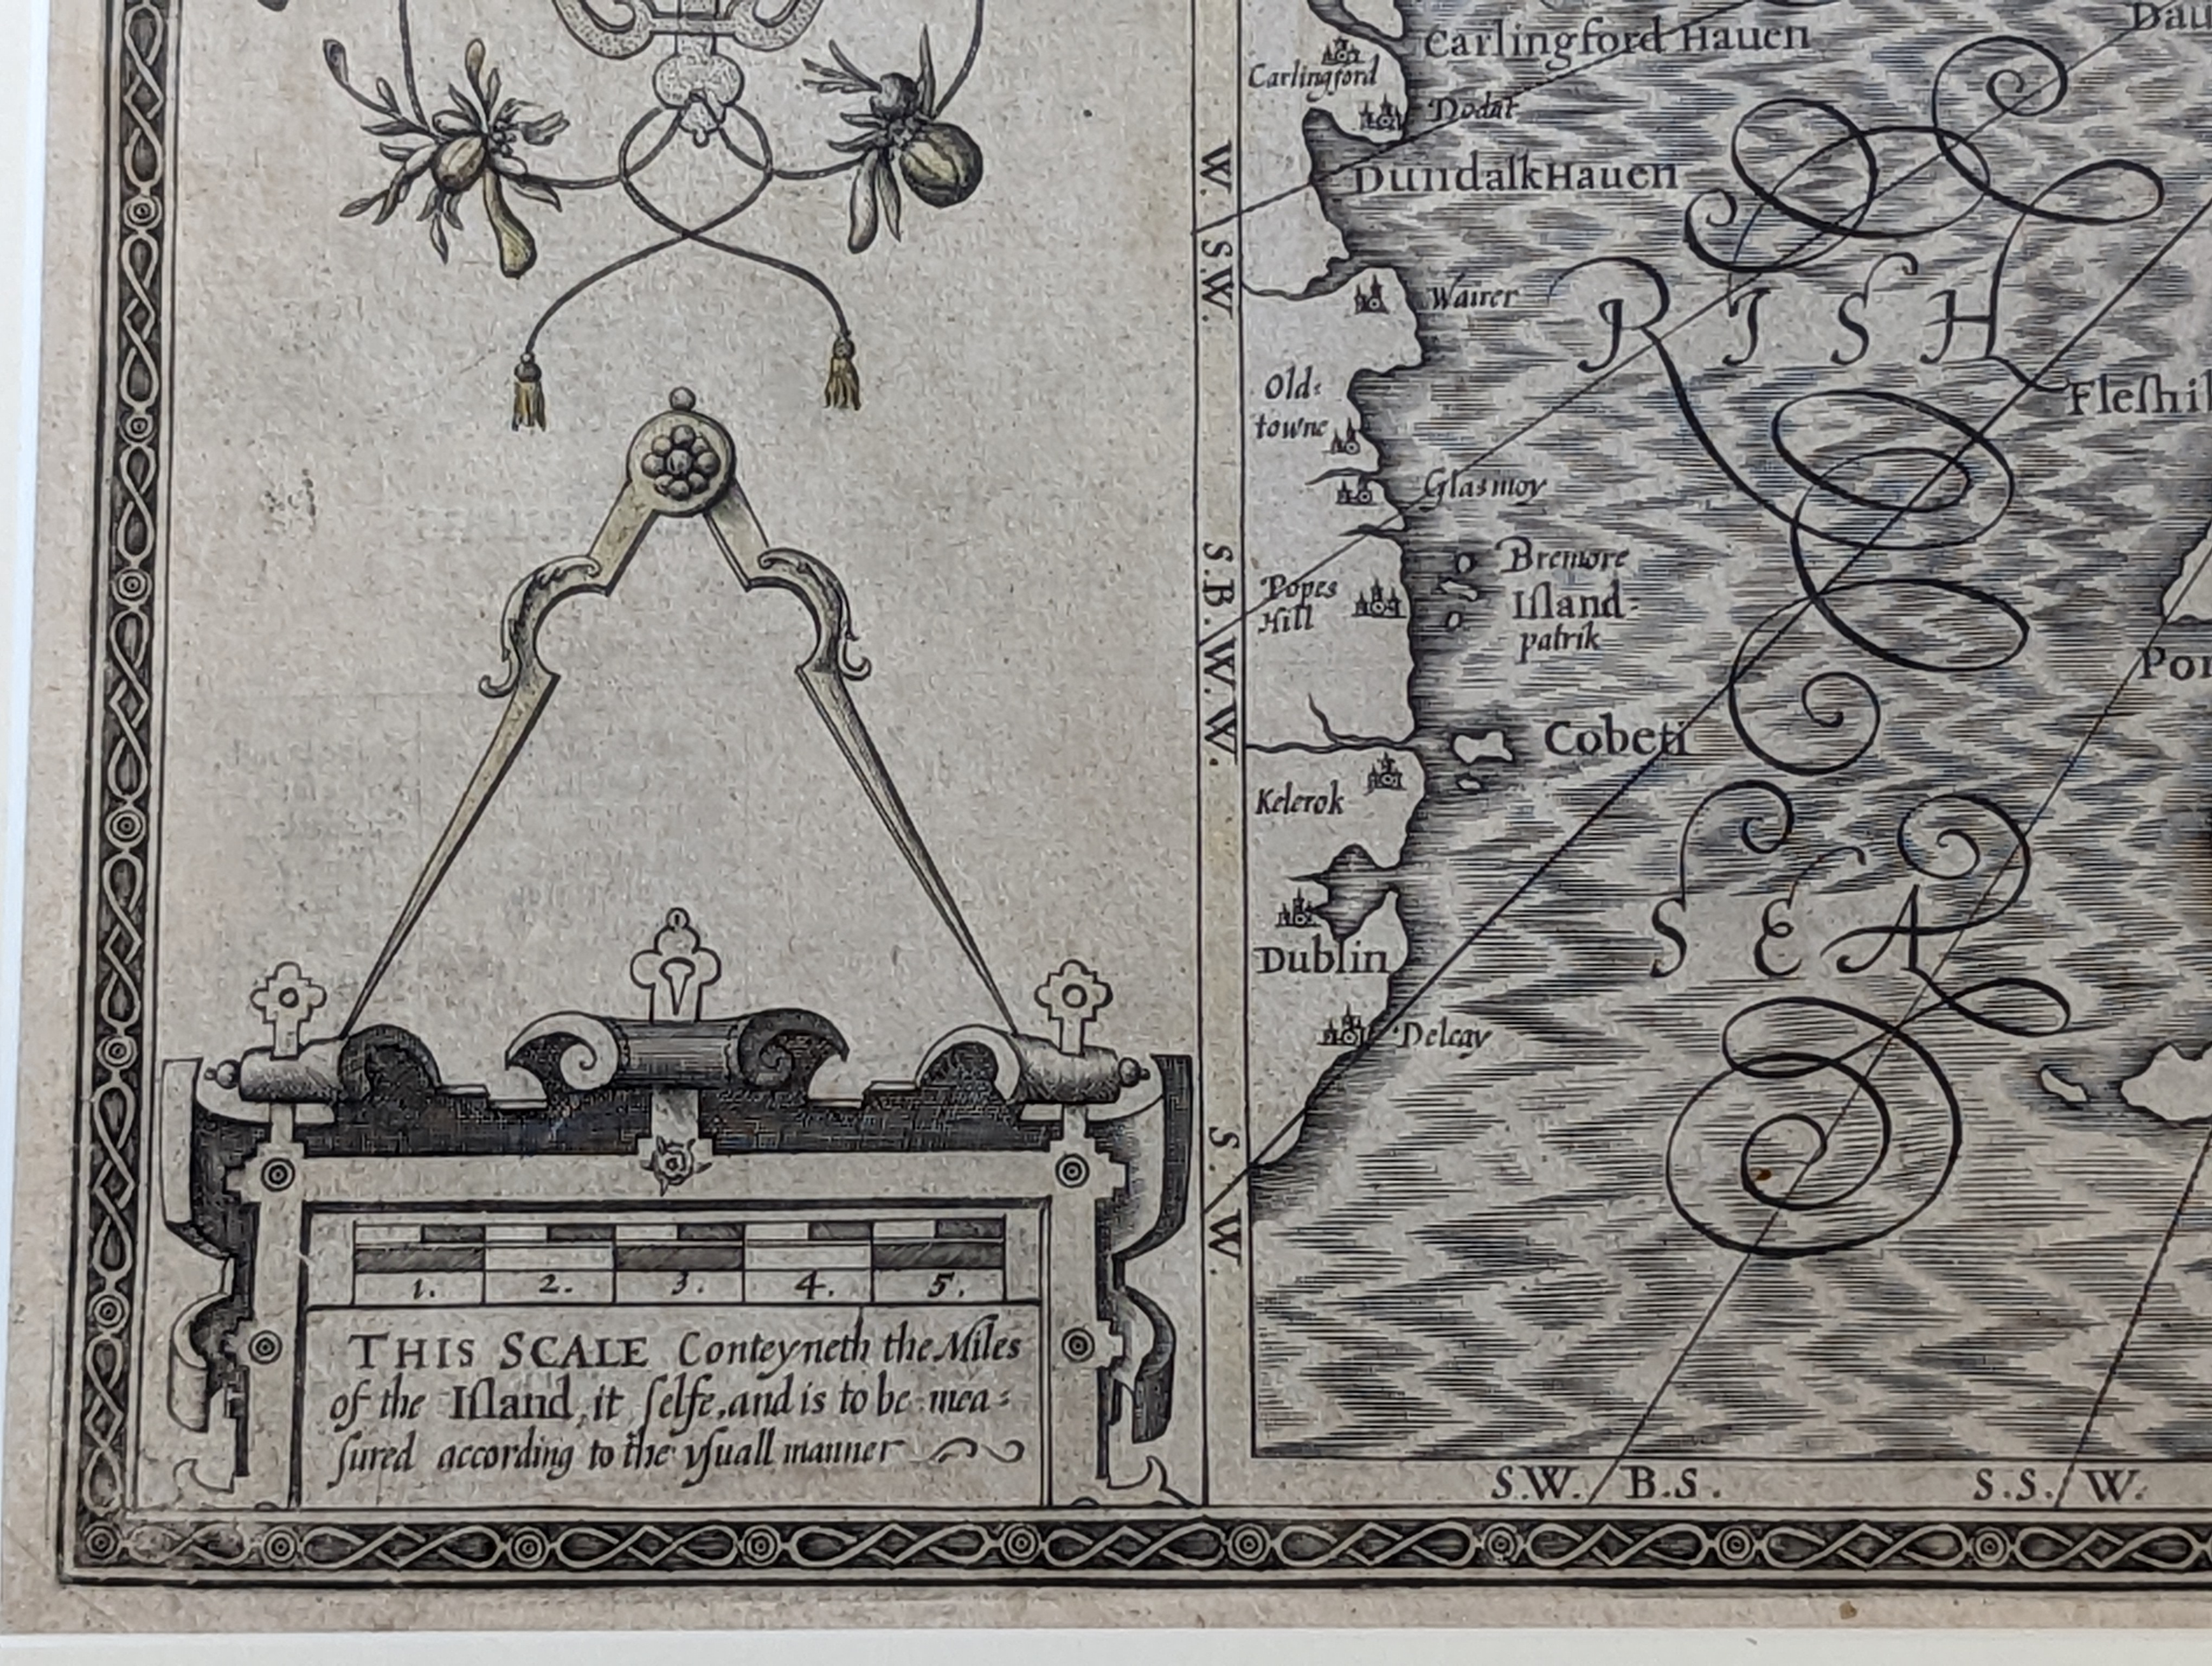 Carlingford Hauen
Carlingford
Dodat
Dundalk Hauen
W.
S.W.
Wairer
IRISH
Old:
towne
Fleſhil
Glasmoy
S.B.W.W.
Bremore
Iſland
patrik
Popes
Hill
Cobeti
Kelerok
SEA
Dublin
Delcay
S.W.
1. 2. 3. 4. 5.
THIS SCALE Conteyneth the Miles
of the Iſland, it ſelfe, and is to be mea:
ſured according to the yſuall manner
S.W. B.S. S.S. W.